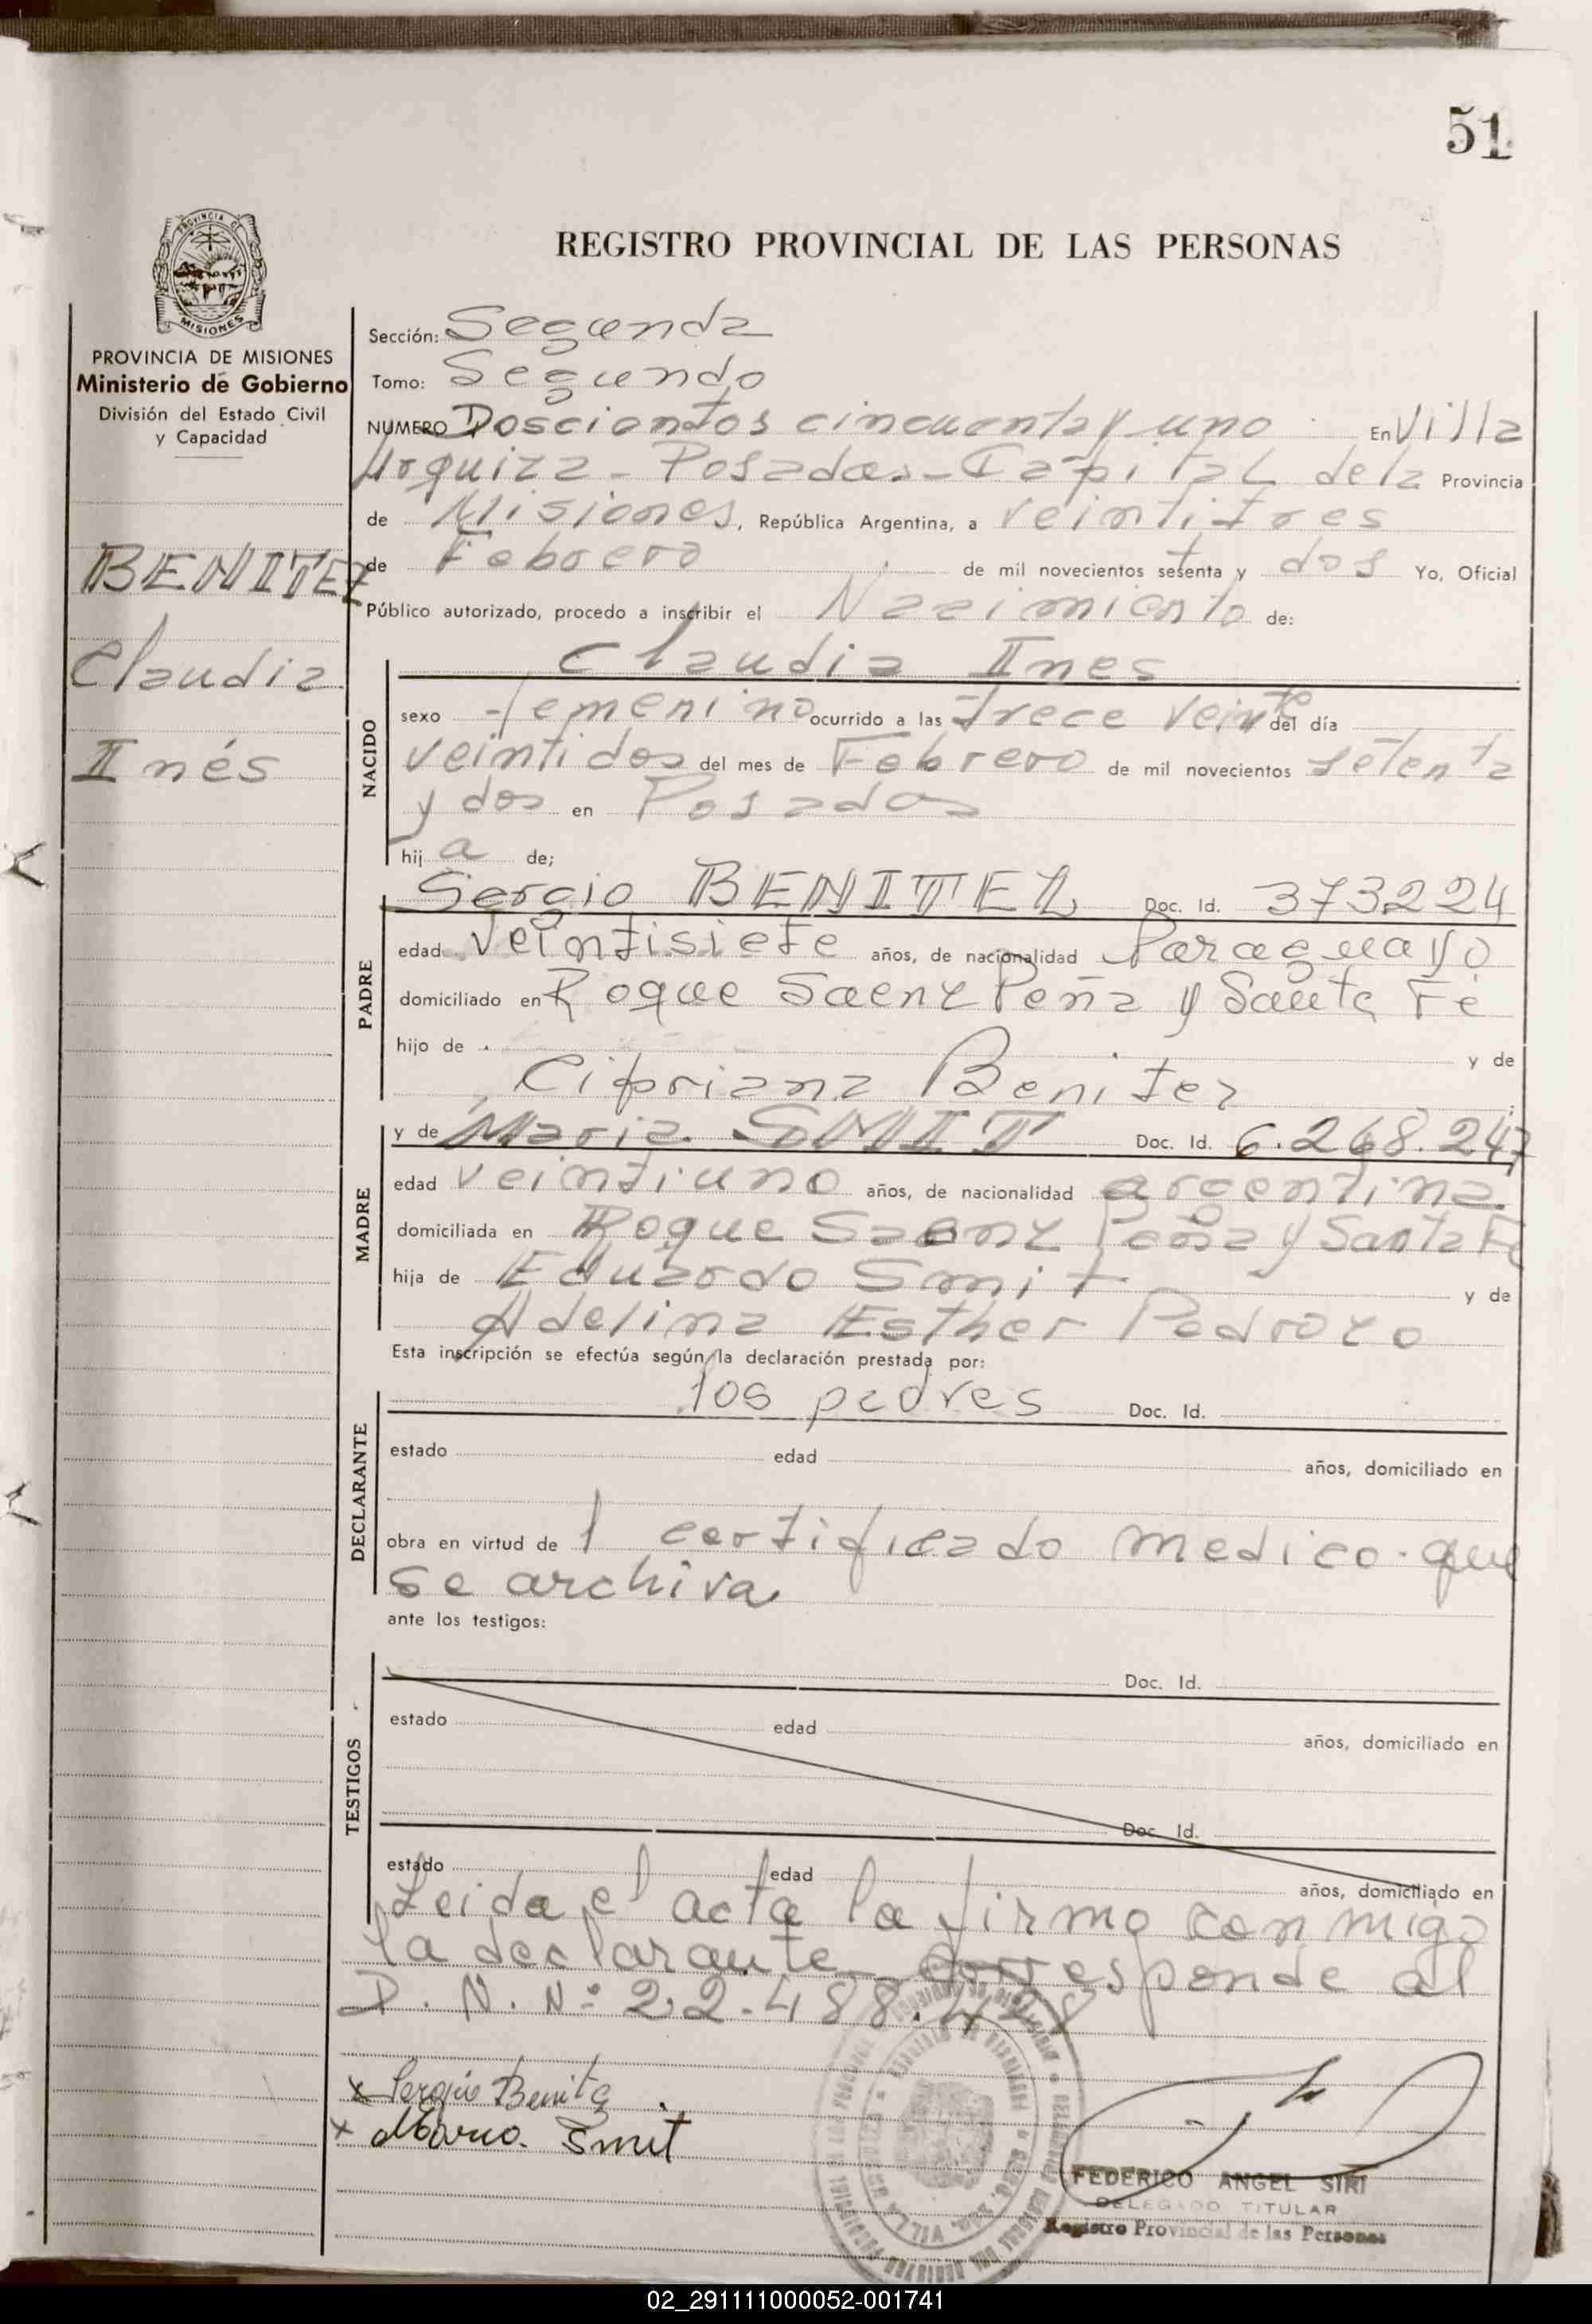 51
REGISTRO PROVINCIAL DE LAS PERSONAS
PROVINCIA DE MISIONES
Ministerio de Gobierno
División del Estado Civil
y Capacidad
BENITEZ
Claudia
Inés
Sección: Segunda
Tomo: Segundo
NUMERO Doscientos cincuenta y uno En Villa
Urquiza - Posadas - Capital de la Provincia
de Misiones, República Argentina, a veintitres
de Febrero de mil novecientos setenta y dos Yo, Oficial
Público autorizado, procedo a inscribir el Nacimiento de:
Claudia Ines
NACIDO
sexo femenino ocurrido a las trece veinte del día
veintidos del mes de Febrero de mil novecientos setenta
y dos en Posadas
hij a de;
Sergio BENITEZ Doc. Id. 373224
PADRE
edad veintisiete años, de nacionalidad Paraguayo
domiciliado en Roque Saenz Peña y Santa Fé
hijo de y de
Cipriana Benitez
y de Maria SMIT Doc. Id. 6.268.247
MADRE
edad veintiuno años, de nacionalidad argentina
domiciliada en Roque Saenz Peña y Santa Fe
hija de Eduardo Smit y de
Adelina Esther Pedrozo
Esta inscripción se efectúa según la declaración prestada por:
los padres Doc. Id.
DECLARANTE
estado edad años, domiciliado en
obra en virtud de 1 certificado medico que
se archiva
ante los testigos:
Doc. Id.
TESTIGOS
estado edad años, domiciliado en
Doc. Id.
estado edad años, domiciliado en
Leida el acta la firmo conmigo
la declarante corresponde al
D. N. Nº 22.488.428
x Sergio Benitez
x Maria Smit
FEDERICO ANGEL SIRI
DELEGADO TITULAR
Registro Provincial de las Personas
02_291111000052-001741